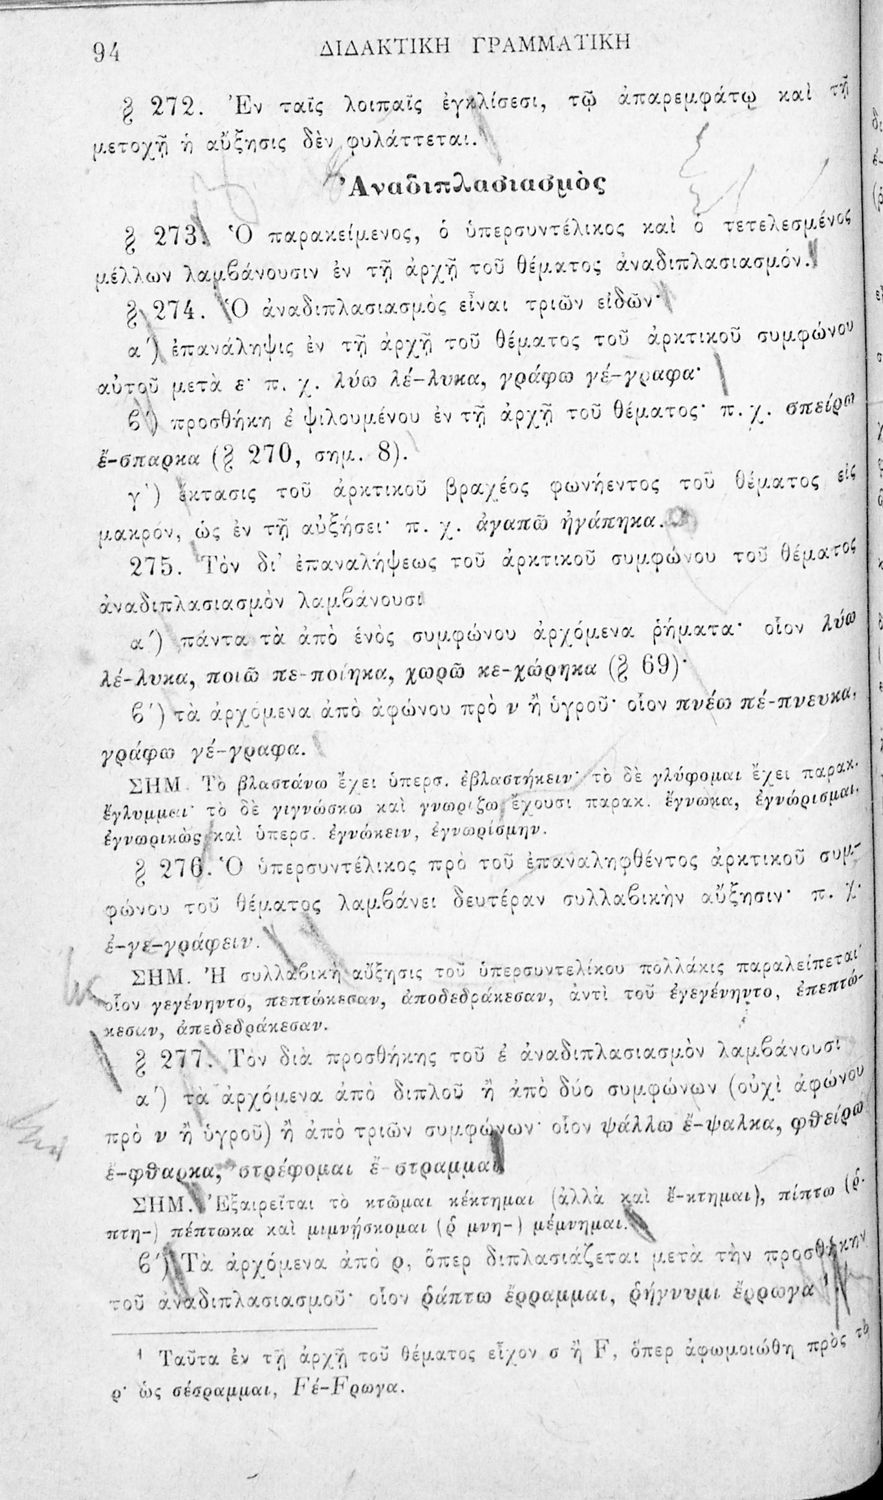 94 ΔΙΔΑΚΤΙΚΗ ΓΡΑΜΜΑΤΙΚΗ
§ 272. Ἐν ταῖς λοιπαῖς ἐγκλίσεσι, τῷ ἀπαρεμφάτῳ καὶ τῇ
μετοχῇ ἡ αὔξησις δὲν φυλάττεται.
Ἀναδιπλασιασμὸς
§ 273. Ὁ παρακείμενος, ὁ ὑπερσυντέλικος καὶ ὁ τετελεσμένος
μέλλων λαμβάνουσιν ἐν τῇ ἀρχῇ τοῦ θέματος ἀναδιπλασιασμόν.
§ 274. Ὁ ἀναδιπλασιασμὸς εἶναι τριῶν εἰδῶν·
α΄) ἐπανάληψις ἐν τῇ ἀρχῇ τοῦ θέματος τοῦ ἀρκτικοῦ συμφώνου
αὐτοῦ μετὰ ε· π. χ. λύω λέ-λυκα, γράφω γέ-γραφα·
β΄) προσθήκη ἐ ψιλουμένου ἐν τῇ ἀρχῇ τοῦ θέματος· π. χ. σπείρω
ἔ-σπαρκα (§ 270, σημ. 8).
γ΄) ἔκτασις τοῦ ἀρκτικοῦ βραχέος φωνήεντος τοῦ θέματος εἰς
μακρόν, ὡς ἐν τῇ αὐξήσει· π. χ. ἀγαπῶ ἠγάπηκα.
275. Τὸν δι' ἐπαναλήψεως τοῦ ἀρκτικοῦ συμφώνου τοῦ θέματος
ἀναδιπλασιασμὸν λαμβάνουσι
α΄) πάντα τὰ ἀπὸ ἑνὸς συμφώνου ἀρχόμενα ῥήματα· οἷον λύω
λέ-λυκα, ποιῶ πε-ποίηκα, χωρῶ κε-χώρηκα (§ 69)·
β΄) τὰ ἀρχόμενα ἀπὸ ἀφώνου πρὸ ν ἢ ὑγροῦ· οἷον πνέω πέ-πνευκα,
γράφω γέ-γραφα.
ΣΗΜ. Τὸ βλαστάνω ἔχει ὑπερσ. ἐβλαστήκειν· τὸ δὲ γλύφομαι ἔχει παρακ.
ἔγλυμμαι· τὸ δὲ γιγνώσκω καὶ γνωρίζω ἔχουσι παρακ. ἔγνωκα, ἐγνώρισμαι,
ἐγνωρικὼς καὶ ὑπερσ. ἐγνώκειν, ἐγνωρίσμην.
§ 276. Ὁ ὑπερσυντέλικος πρὸ τοῦ ἐπαναληφθέντος ἀρκτικοῦ συμ-
φώνου τοῦ θέματος λαμβάνει δευτέραν συλλαβικὴν αὔξησιν· π. χ.
ἐ-γε-γράφειν.
ΣΗΜ. Ἡ συλλαβικὴ αὔξησις τοῦ ὑπερσυντελίκου πολλάκις παραλείπεται·
οἷον γεγένηντο, πεπτώκεσαν, ἀποδεδράκεσαν, ἀντὶ τοῦ ἐγεγένηντο, ἐπεπτώ-
κεσαν, ἀπεδεδράκεσαν.
§ 277. Τὸν διὰ προσθήκης τοῦ ἐ ἀναδιπλασιασμὸν λαμβάνουσι
α΄) τὰ ἀρχόμενα ἀπὸ διπλοῦ ἢ ἀπὸ δύο συμφώνων (οὐχὶ ἀφώνου
πρὸ ν ἢ ὑγροῦ) ἢ ἀπὸ τριῶν συμφώνων· οἷον ψάλλω ἔ-ψαλκα, φθείρω
ἔ-φθαρκα, στρέφομαι ἔ-στραμμαι
ΣΗΜ. Ἐξαιρεῖται τὸ κτῶμαι κέκτημαι (ἀλλὰ καὶ ἔ-κτημαι), πίπτω (ῥ.
πτη-) πέπτωκα καὶ μιμνήσκομαι (ῥ μνη-) μέμνημαι.
β΄) Τὰ ἀρχόμενα ἀπὸ ρ, ὅπερ διπλασιάζεται μετὰ τὴν προσθήκην
τοῦ ἀναδιπλασιασμοῦ· οἷον ῥάπτω ἔρραμμαι, ῥήγνυμι ἔρρωγα ¹.
¹ Ταῦτα ἐν τῇ ἀρχῇ τοῦ θέματος εἶχον σ ἢ F, ὅπερ ἀφωμοιώθη πρὸς τὸ
ρ· ὡς σέσραμμαι, Fέ-Fρωγα.